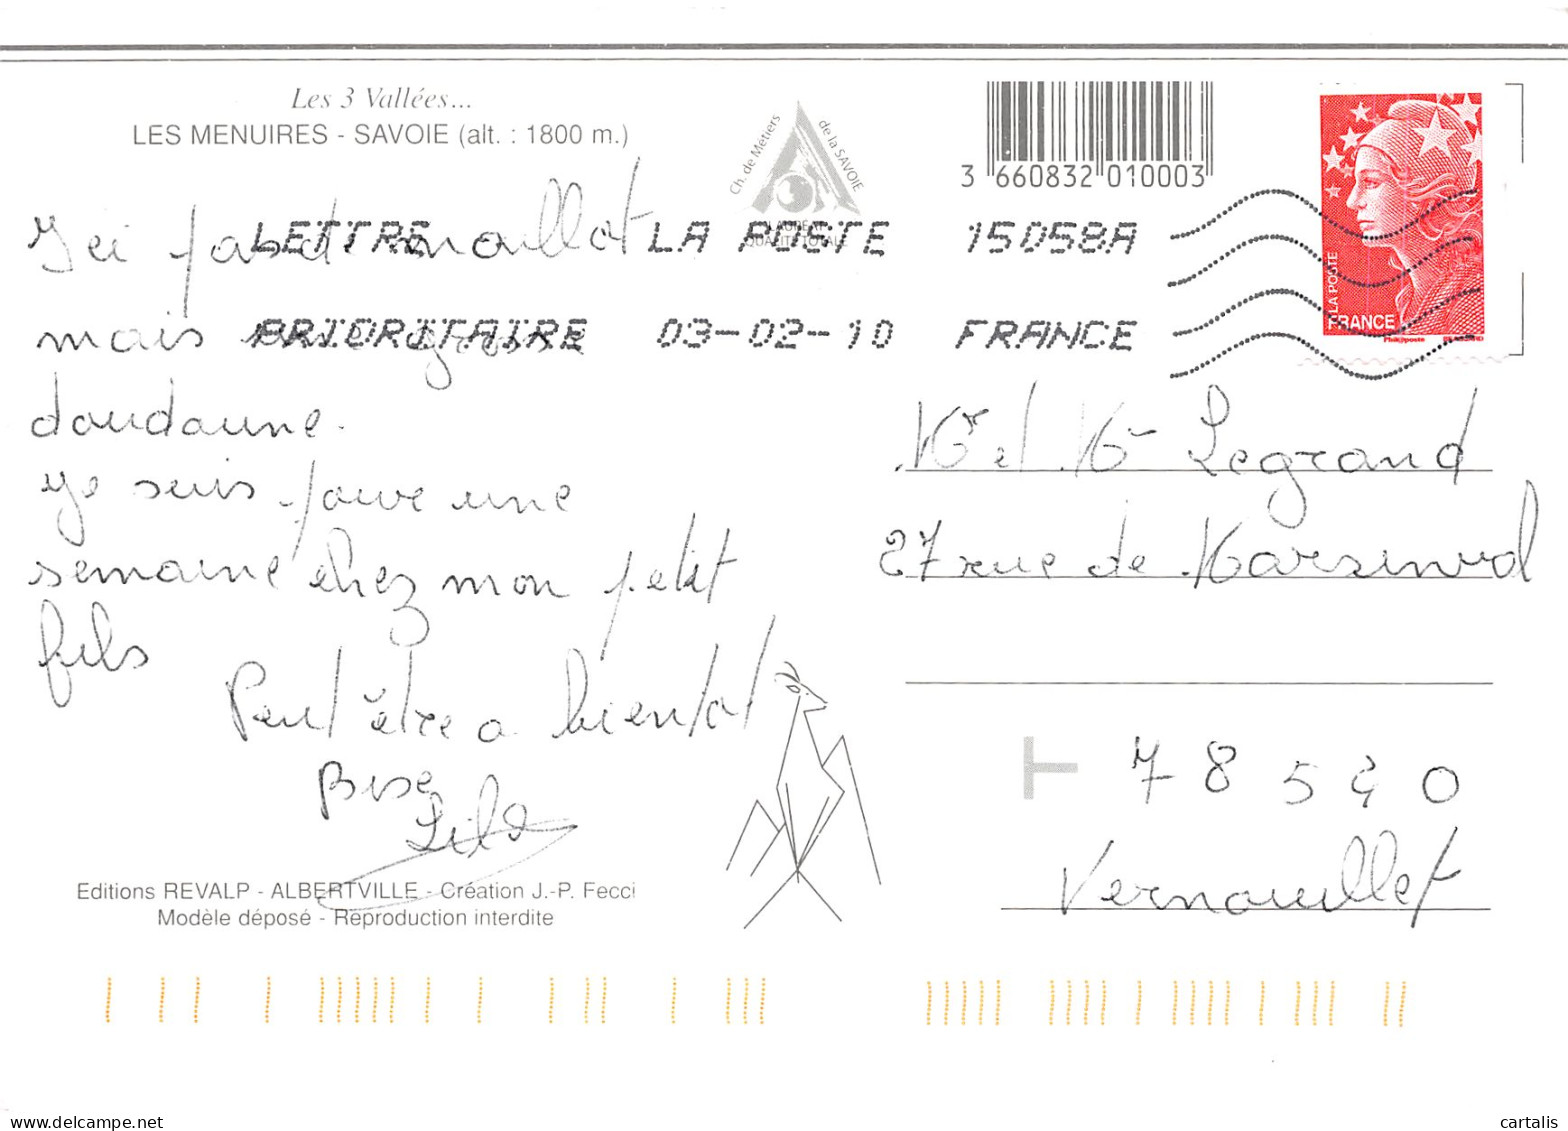 Les 3 Vallées...
LES MENUIRES - SAVOIE (alt. : 1800 m.)
Ch. de Métiers de la SAVOIE
LAURÉAT
QUALITÉ TOTALE
3 660832 010003
LETTRE LA POSTE 15058A
PRIORITAIRE 03-02-10 FRANCE
LA POSTE
FRANCE
Phil@poste
Ici pas de mouillot
mais une grosse
doudoune.
Je suis pour une
semaine chez mon petit
fils
Peut être a bientot
Bise
Lild
Mr et Me Legrand
27 rue de Marsinval
78540
Vernouillet
Editions REVALP - ALBERTVILLE - Création J.-P. Fecci
Modèle déposé - Reproduction interdite
cartalis
delcampe.net